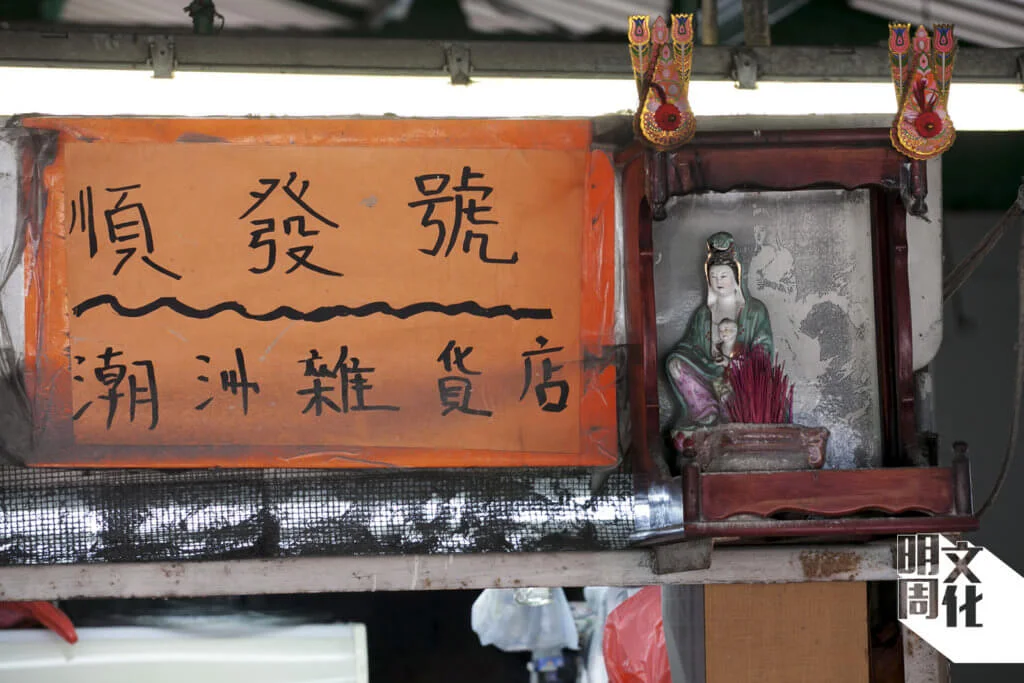 順發號
潮洲雜貨店
明周
文化